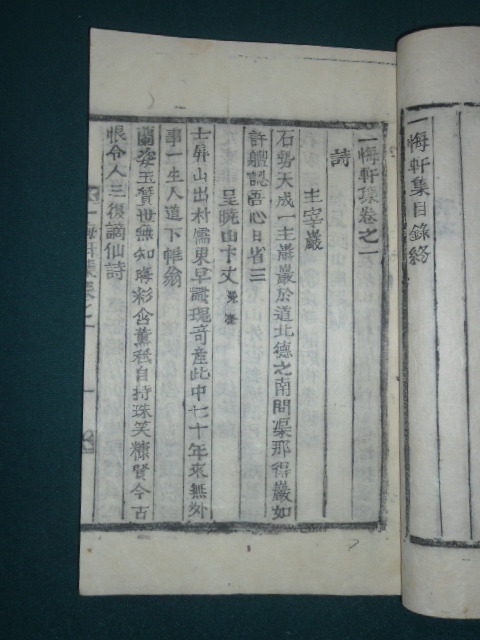 一悔軒集目錄終
一悔軒集卷之一
詩
主宰巖
石勢天成一主巖巖於道北德之南問渠那得巖如
許體認吾心日省三
呈曉山卞丈
士屛山出村儒東早聽瑰奇産此中七十年來無外
事一生人道下帷翁
蘭姿玉質世無知晦彩含薰秪自持珠笑糠賢今古
恨令人三復謫仙詩
一悔軒集卷之一